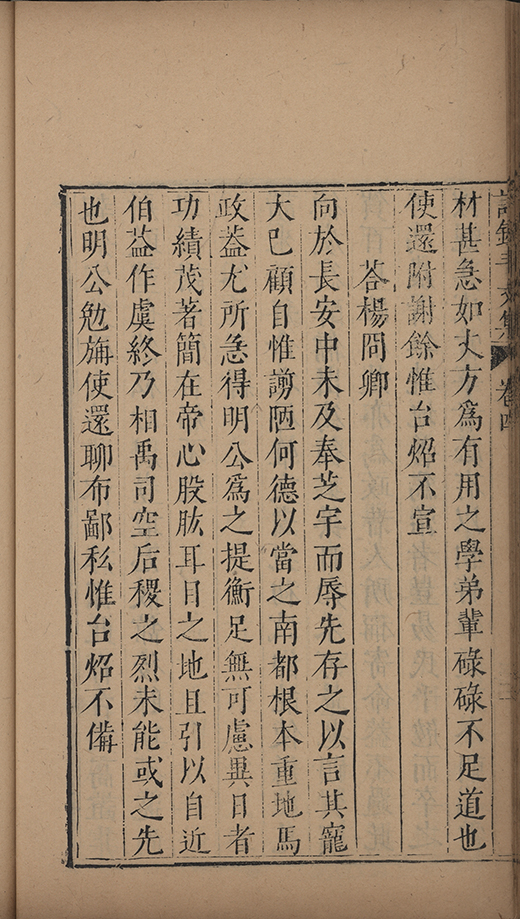 卷四
材甚急如丈方爲有用之學弟輩碌碌不足道也
使還附謝餘惟台炤不宣
荅楊冏卿
向於長安中未及奉芝宇而辱先存之以言其寵
大巳顧自惟謭陋何德以當之南都根本重地馬
政葢尤所急得明公爲之提衡足無可慮異日者
功績茂著簡在帝心股肱耳目之地且引以自近
伯益作虞終乃相禹司空后稷之烈未能或之先
也明公勉旃使還聊布鄙私惟台炤不備